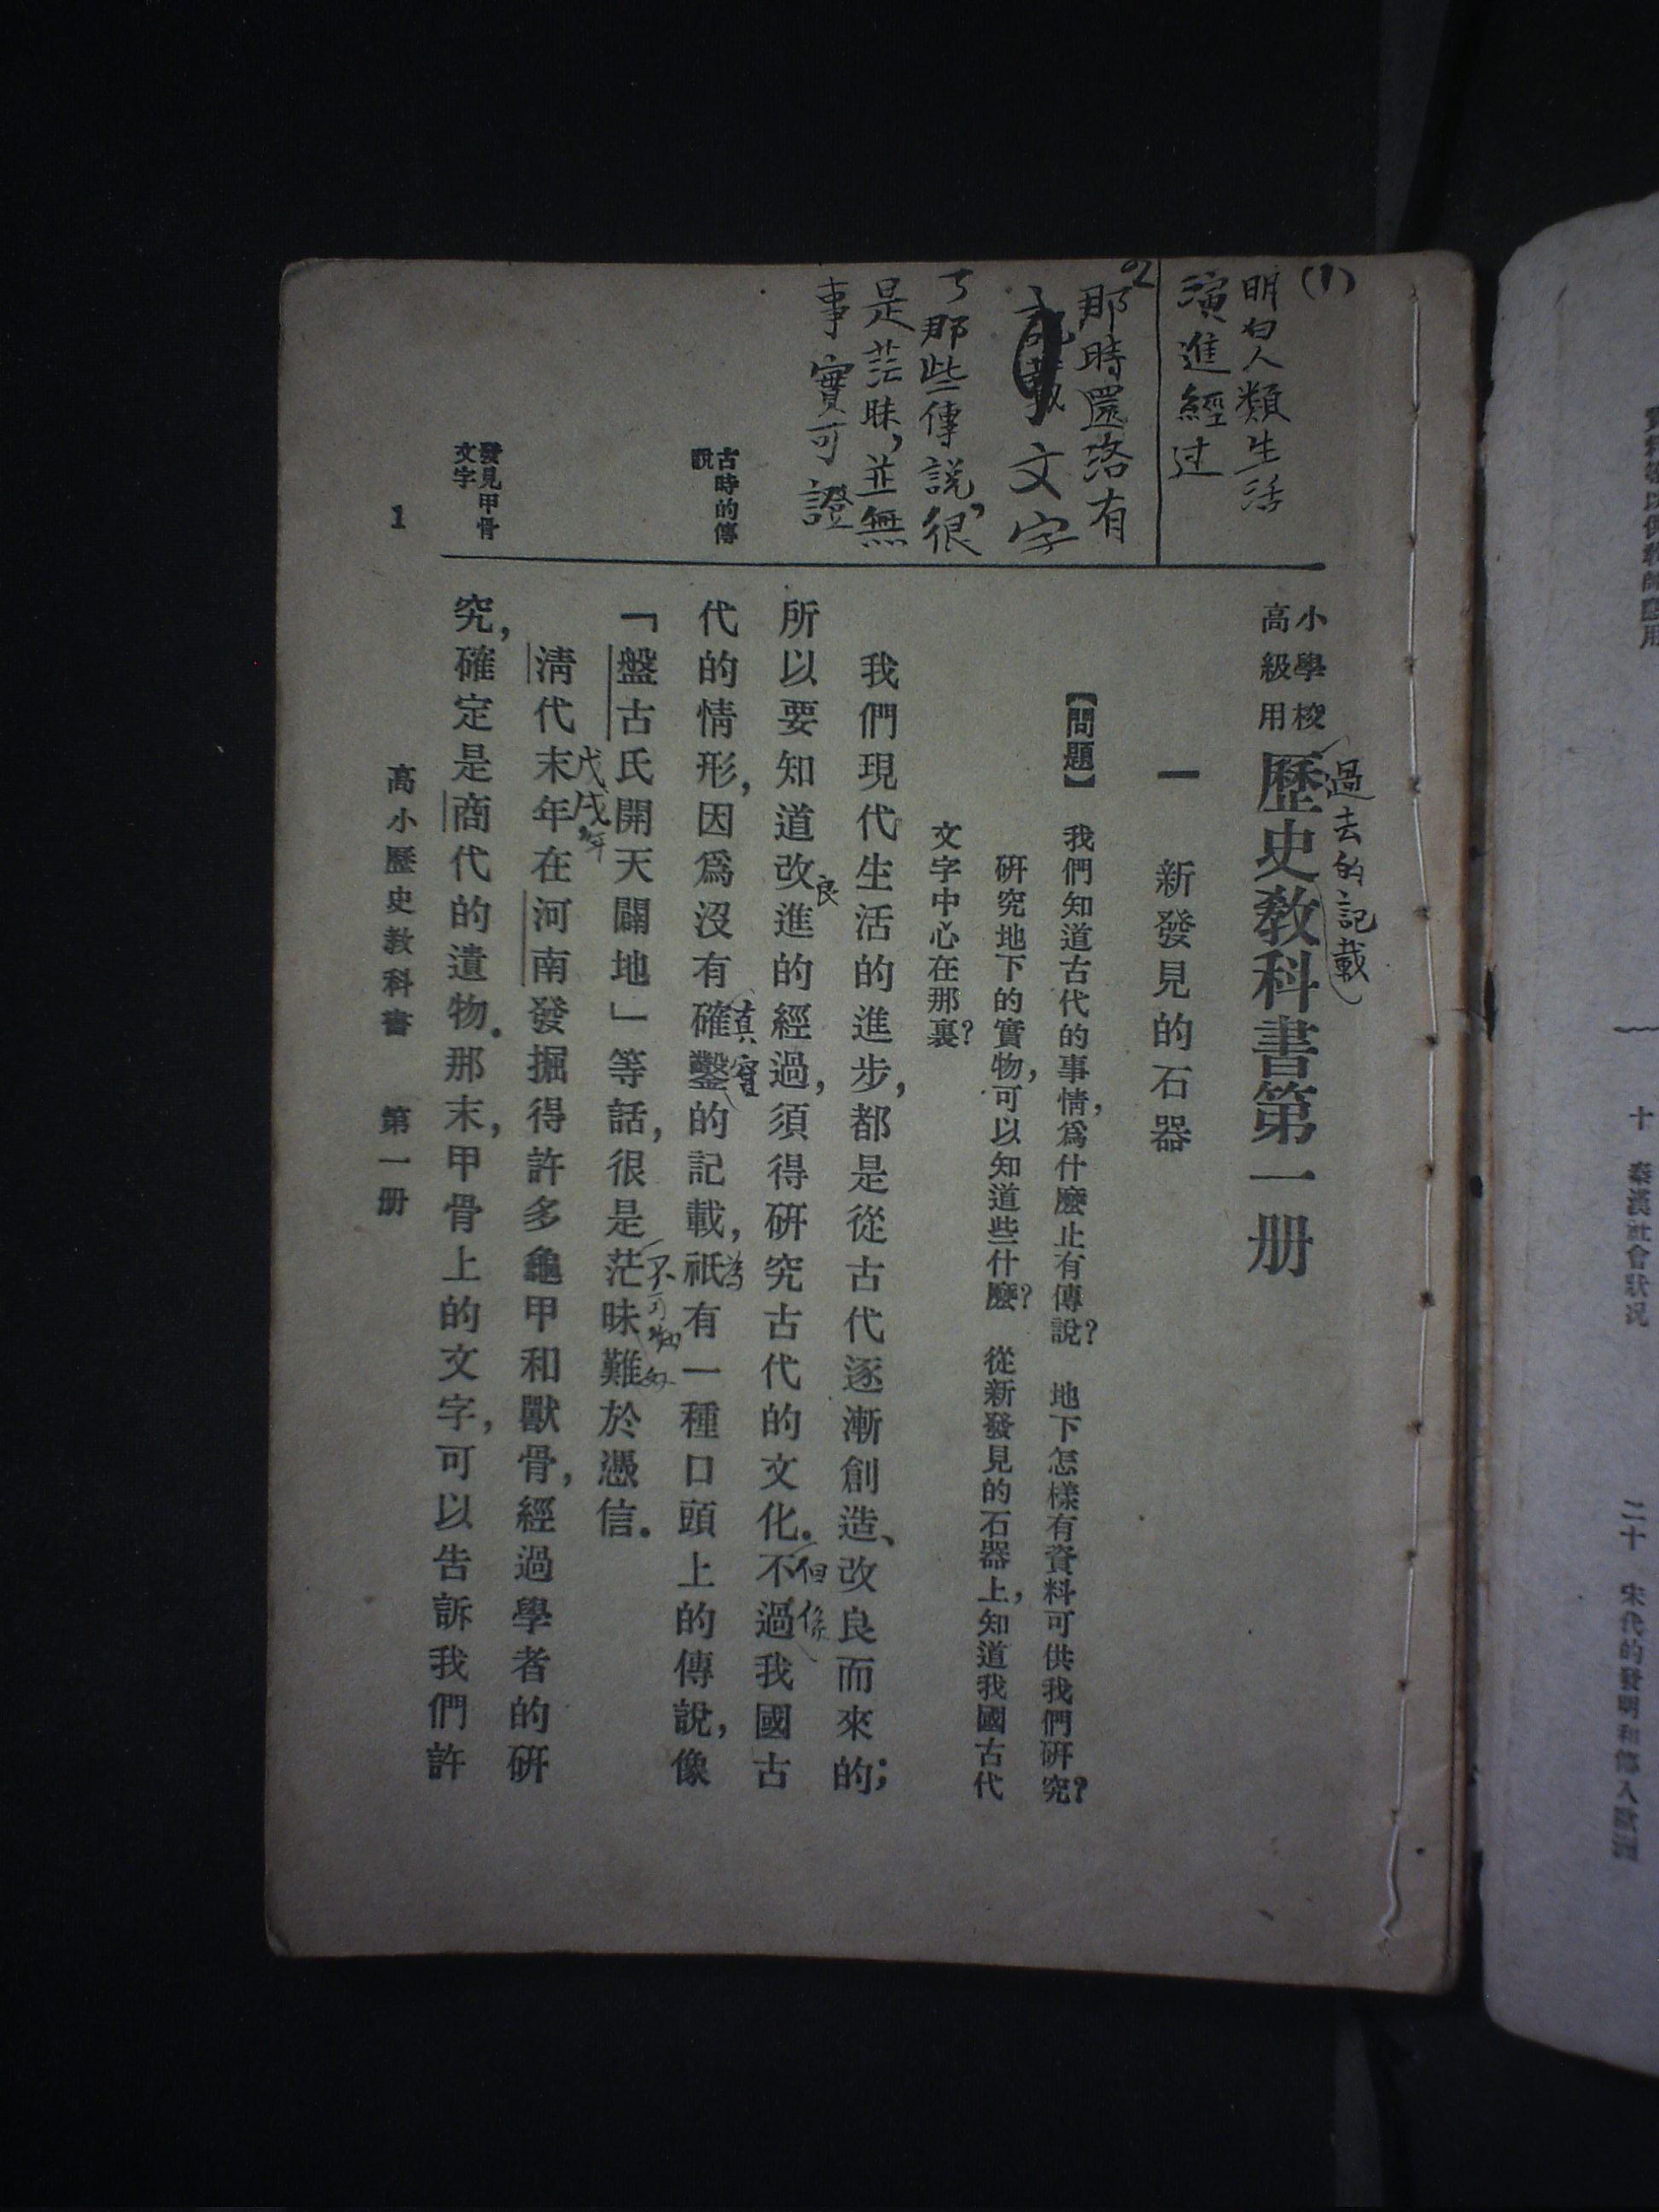 小學校
高級用
歷史教科書第一册
過去的記載
一　新發見的石器
【問題】　我們知道古代的事情，爲什麼止有傳說？　地下怎樣有資料可供我們研究？
研究地下的實物，可以知道些什麼？　從新發見的石器上，知道我國古代
文字中心在那裏？
我們現代生活的進步，都是從古代逐漸創造、改良而來的；
所以要知道改進的經過，須得研究古代的文化。不過我國古
良
但係
代的情形，因爲沒有確鑿的記載，祇有一種口頭上的傳說，像
真實
為
「盤古氏開天闢地」等話，很是茫昧難於憑信。
不可知
清代末年在河南發掘得許多龜甲和獸骨，經過學者的研
戊戌年
究，確定是商代的遺物。那末，甲骨上的文字，可以告訴我們許
(1)
明白人類生活
演進經过
2
那時還洛有
文字
了那些傳説，很
是茫昧，並無
事實可證
古時的傳
說
發見甲骨
文字
1
高小歷史教科書　第一册
十　秦漢社會狀況
二十　宋代的發明和傳入歐洲